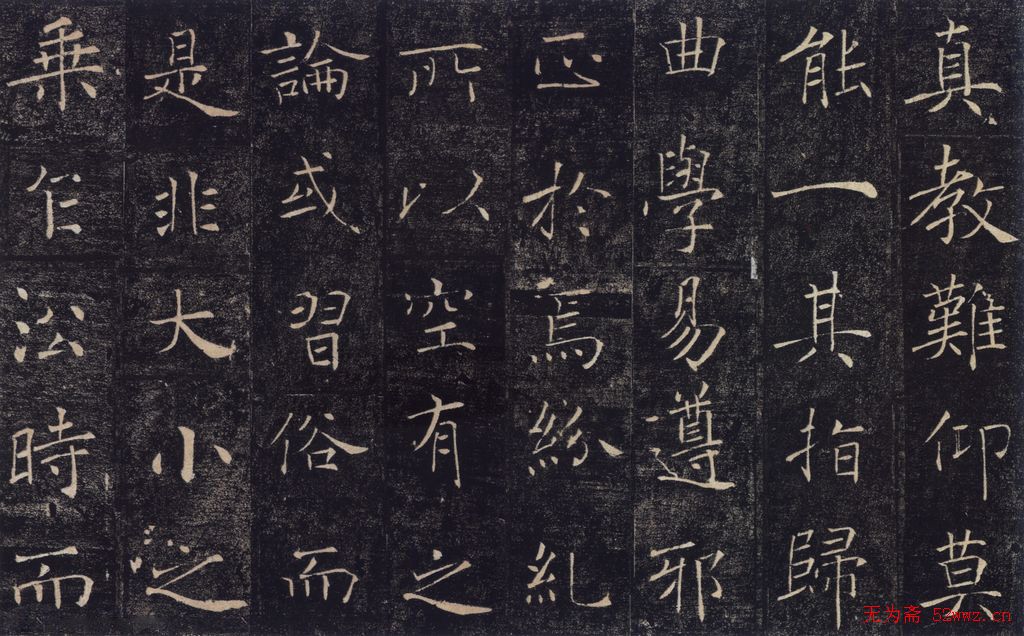 真教難仰莫
能一其指歸
曲學易遵邪
正於焉紛糺
所以空有之
論或習俗而
是非大小之
乘乍沿時而
无为斋 52wwz.cn